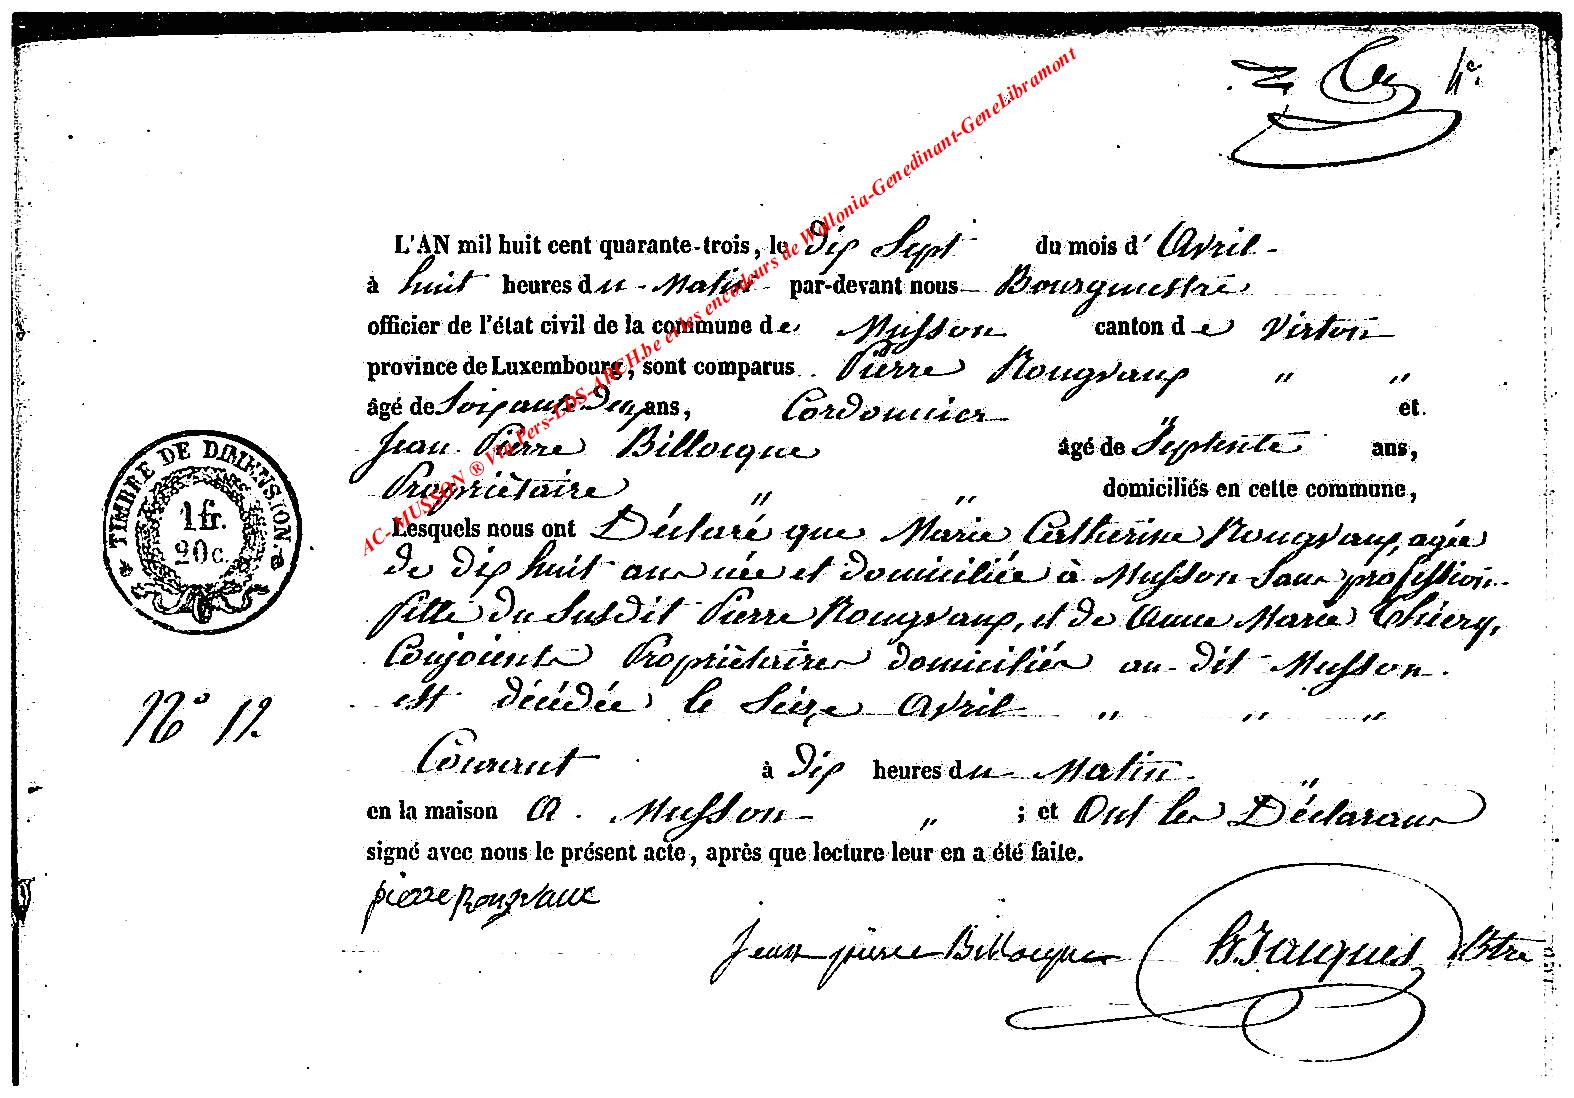 4e
L'AN mil huit cent quarante-trois, le dix Sept du mois d' Avril -
à huit heures du - Matin - par-devant nous - Bourgmestre
officier de l'état civil de la commune de Musson canton de Virton
province de Luxembourg, sont comparus Pierre Rougvaux " "
âgé de Soixante Deux ans, Cordonnier " et
Jean Pierre Billocque âgé de Septente ans,
Propriètaire " " domiciliés en cette commune,
Lesquels nous ont Déclaré que Marie Catherine Rougvaux, agée
de dix huit ans née et domiciliée à Musson Sans profession -
fille du Susdit Pierre Rougvaux, et de Anne Marie Thiery,
Conjoints Propriètaires domiciliés au dit Musson.
est décédée le Seize Avril " " "
Courant à dix heures du Matin - "
en la maison a Musson - " ; et Ont les Déclarans
signé avec nous le présent acte, après que lecture leur en a été faite.
pierre Rougvaux
Jean pierre Billocque Jacques Btre
TIMBRE DE DIMENSION.
1 fr.
20 c.
No 12.
AC-MUSSON ® Via Pers-LDS-ARCH.be et les encodeurs de Wallonia-Genedinant-GeneLibramont